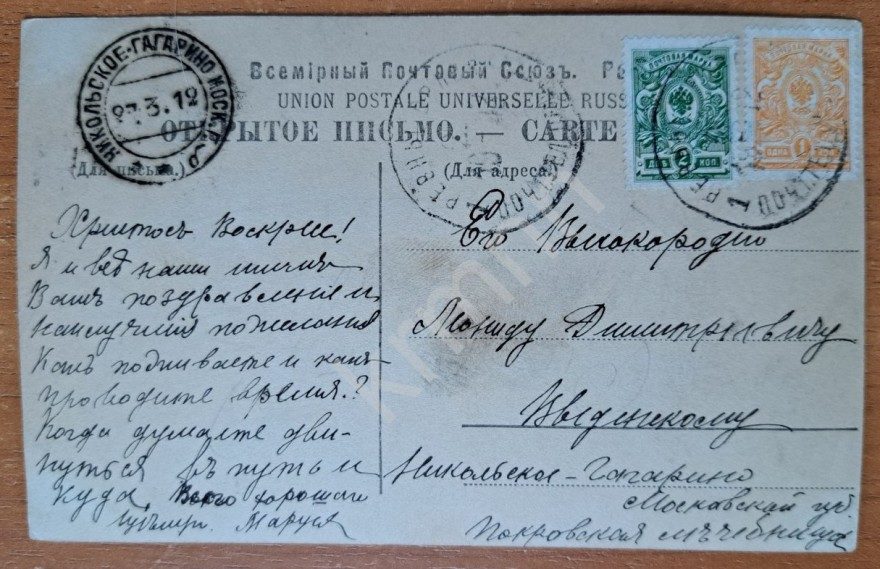 НИКОЛЬСКОЕ-ГАГАРИНО МОСК. Г.
27.3.12
Всемірный Почтовый Союзъ.
UNION POSTALE UNIVERSELLE RUSS
ОТКРЫТОЕ ПИСЬМО. — CARTE
(Для письма.)
(Для адреса.)
ПОЧТОВАЯ МАРКА
ДВѢ 2 КОП
ПОЧТОВАЯ МАРКА
ОДНА 1
Христосъ Воскресе!
Я и всѣ наши
Вамъ поздравленія и
наилучшія пожеланія
Какъ поживаете и какъ
проводите время?
Когда думаете дви-
нуться въ путь и
куда Всего хорошаго
Маруся
Его Высокородію
Леониду Димитріевичу
Введенскому
Никольское-Гагарино
Московской губ.
Покровская лѣчебница